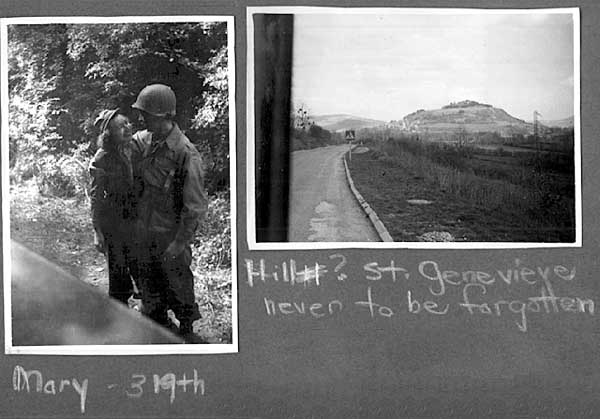 Hill#? St. Genevieve
never to be forgotten
Mary - 319th